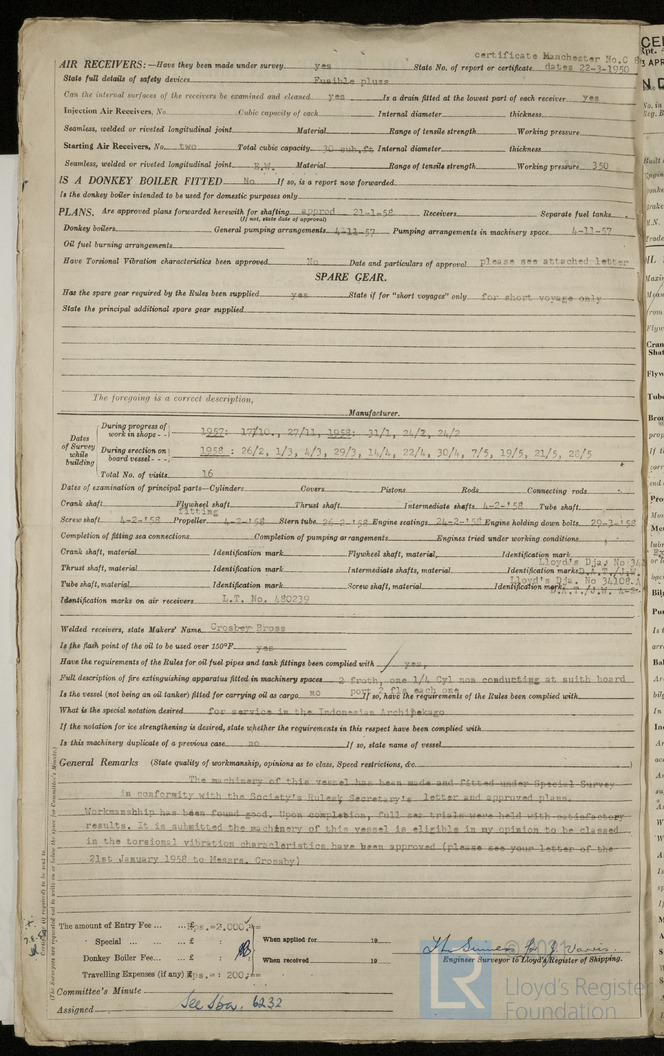 certificate Manchester No.C 8
AIR RECEIVERS:—Have they been made under survey yes State No. of report or certificate dates 22-3-1950
State full details of safety devices Fusible pluss
Can the internal surfaces of the receivers be examined and cleaned yes Is a drain fitted at the lowest part of each receiver yes
Injection Air Receivers, No. Cubic capacity of each Internal diameter thickness
Seamless, welded or riveted longitudinal joint Material Range of tensile strength Working pressure
Starting Air Receivers, No. two Total cubic capacity 30 cub.ft Internal diameter thickness
Seamless, welded or riveted longitudinal joint E.W. Material Range of tensile strength Working pressure 350
IS A DONKEY BOILER FITTED No If so, is a report now forwarded
Is the donkey boiler intended to be used for domestic purposes only
PLANS. Are approved plans forwarded herewith for shafting approd 21-1-58 Receivers Separate fuel tanks
(If not, state date of approval)
Donkey boilers General pumping arrangements 4-11-57 Pumping arrangements in machinery space 4-11-57
Oil fuel burning arrangements
Have Torsional Vibration characteristics been approved No Date and particulars of approval please see attached letter
SPARE GEAR.
Has the spare gear required by the Rules been supplied yes State if for "short voyages" only for short voyage only
State the principal additional spare gear supplied
The foregoing is a correct description,
Manufacturer.
Dates of Survey while building
During progress of work in shops - - 1957: 17/10., 27/11, 1958: 31/1, 24/2, 24/2
During erection on board vessel - - - 1958 : 26/2, 1/3, 4/3, 29/3, 14/4, 22/4, 30/4, 7/5, 19/5, 21/5, 28/5
Total No. of visits 16
Dates of examination of principal parts—Cylinders Covers Pistons Rods Connecting rods
Crank shaft Flywheel shaft Thrust shaft Intermediate shafts 4-2-'58 Tube shaft
fitting
Screw shaft 4-2-'58 Propeller 4-2-'58 Stern tube 26-2-'58 Engine seatings 24-2-'58 Engine holding down bolts 29-3-'58
Completion of fitting sea connections Completion of pumping arrangements Engines tried under working conditions
Crank shaft, material Identification mark Flywheel shaft, material, Identification mark
Lloyd's Dja. No 34
Thrust shaft, material Identification mark Intermediate shafts, material Identification marks D.A.T./J.W.
Lloyd's Dja. No 34108.A
Tube shaft, material Identification mark Screw shaft, material Identification mark D.A.T./J.W. 4-2-
Identification marks on air receivers L.T. No. 480239
Welded receivers, state Makers' Name Crosbey Bross
Is the flash point of the oil to be used over 150°F. yes
Have the requirements of the Rules for oil fuel pipes and tank fittings been complied with yes,
Full description of fire extinguishing apparatus fitted in machinery spaces 2 froth, one 1/4 Cyl noa conducting at suith board
port 2 fls each one
Is the vessel (not being an oil tanker) fitted for carrying oil as cargo no If so, have the requirements of the Rules been complied with
What is the special notation desired for service in the Indonesian Archipekago
If the notation for ice strengthening is desired, state whether the requirements in this respect have been complied with
Is this machinery duplicate of a previous case no If so, state name of vessel
General Remarks (State quality of workmanship, opinions as to class, Speed restrictions, &c.)
The machinery of this vessel has been made and fitted under Special Survey
in conformity with the Society's Rules, Secretary's letter and approved plans.
Workmanship has been found good. Upon completion, full sea trials were held with satisfactory
results. It is submitted the machinery of this vessel is eligible in my opinion to be classed
in the torsional vibration characteristics have been approved (please see your letter of the
21st January 1958 to Messrs. Crossby)
The amount of Entry Fee ... ... Rps.=2.000,==
Special ... ... ... £ : When applied for 19
Donkey Boiler Fee... ... £ : When received 19
Travelling Expenses (if any) Rps.= : 200,==
Engineer Surveyor to Lloyd's Register of Shipping.
Committee's Minute
Assigned See Sba. 6232
LR
Lloyd's Register
Foundation